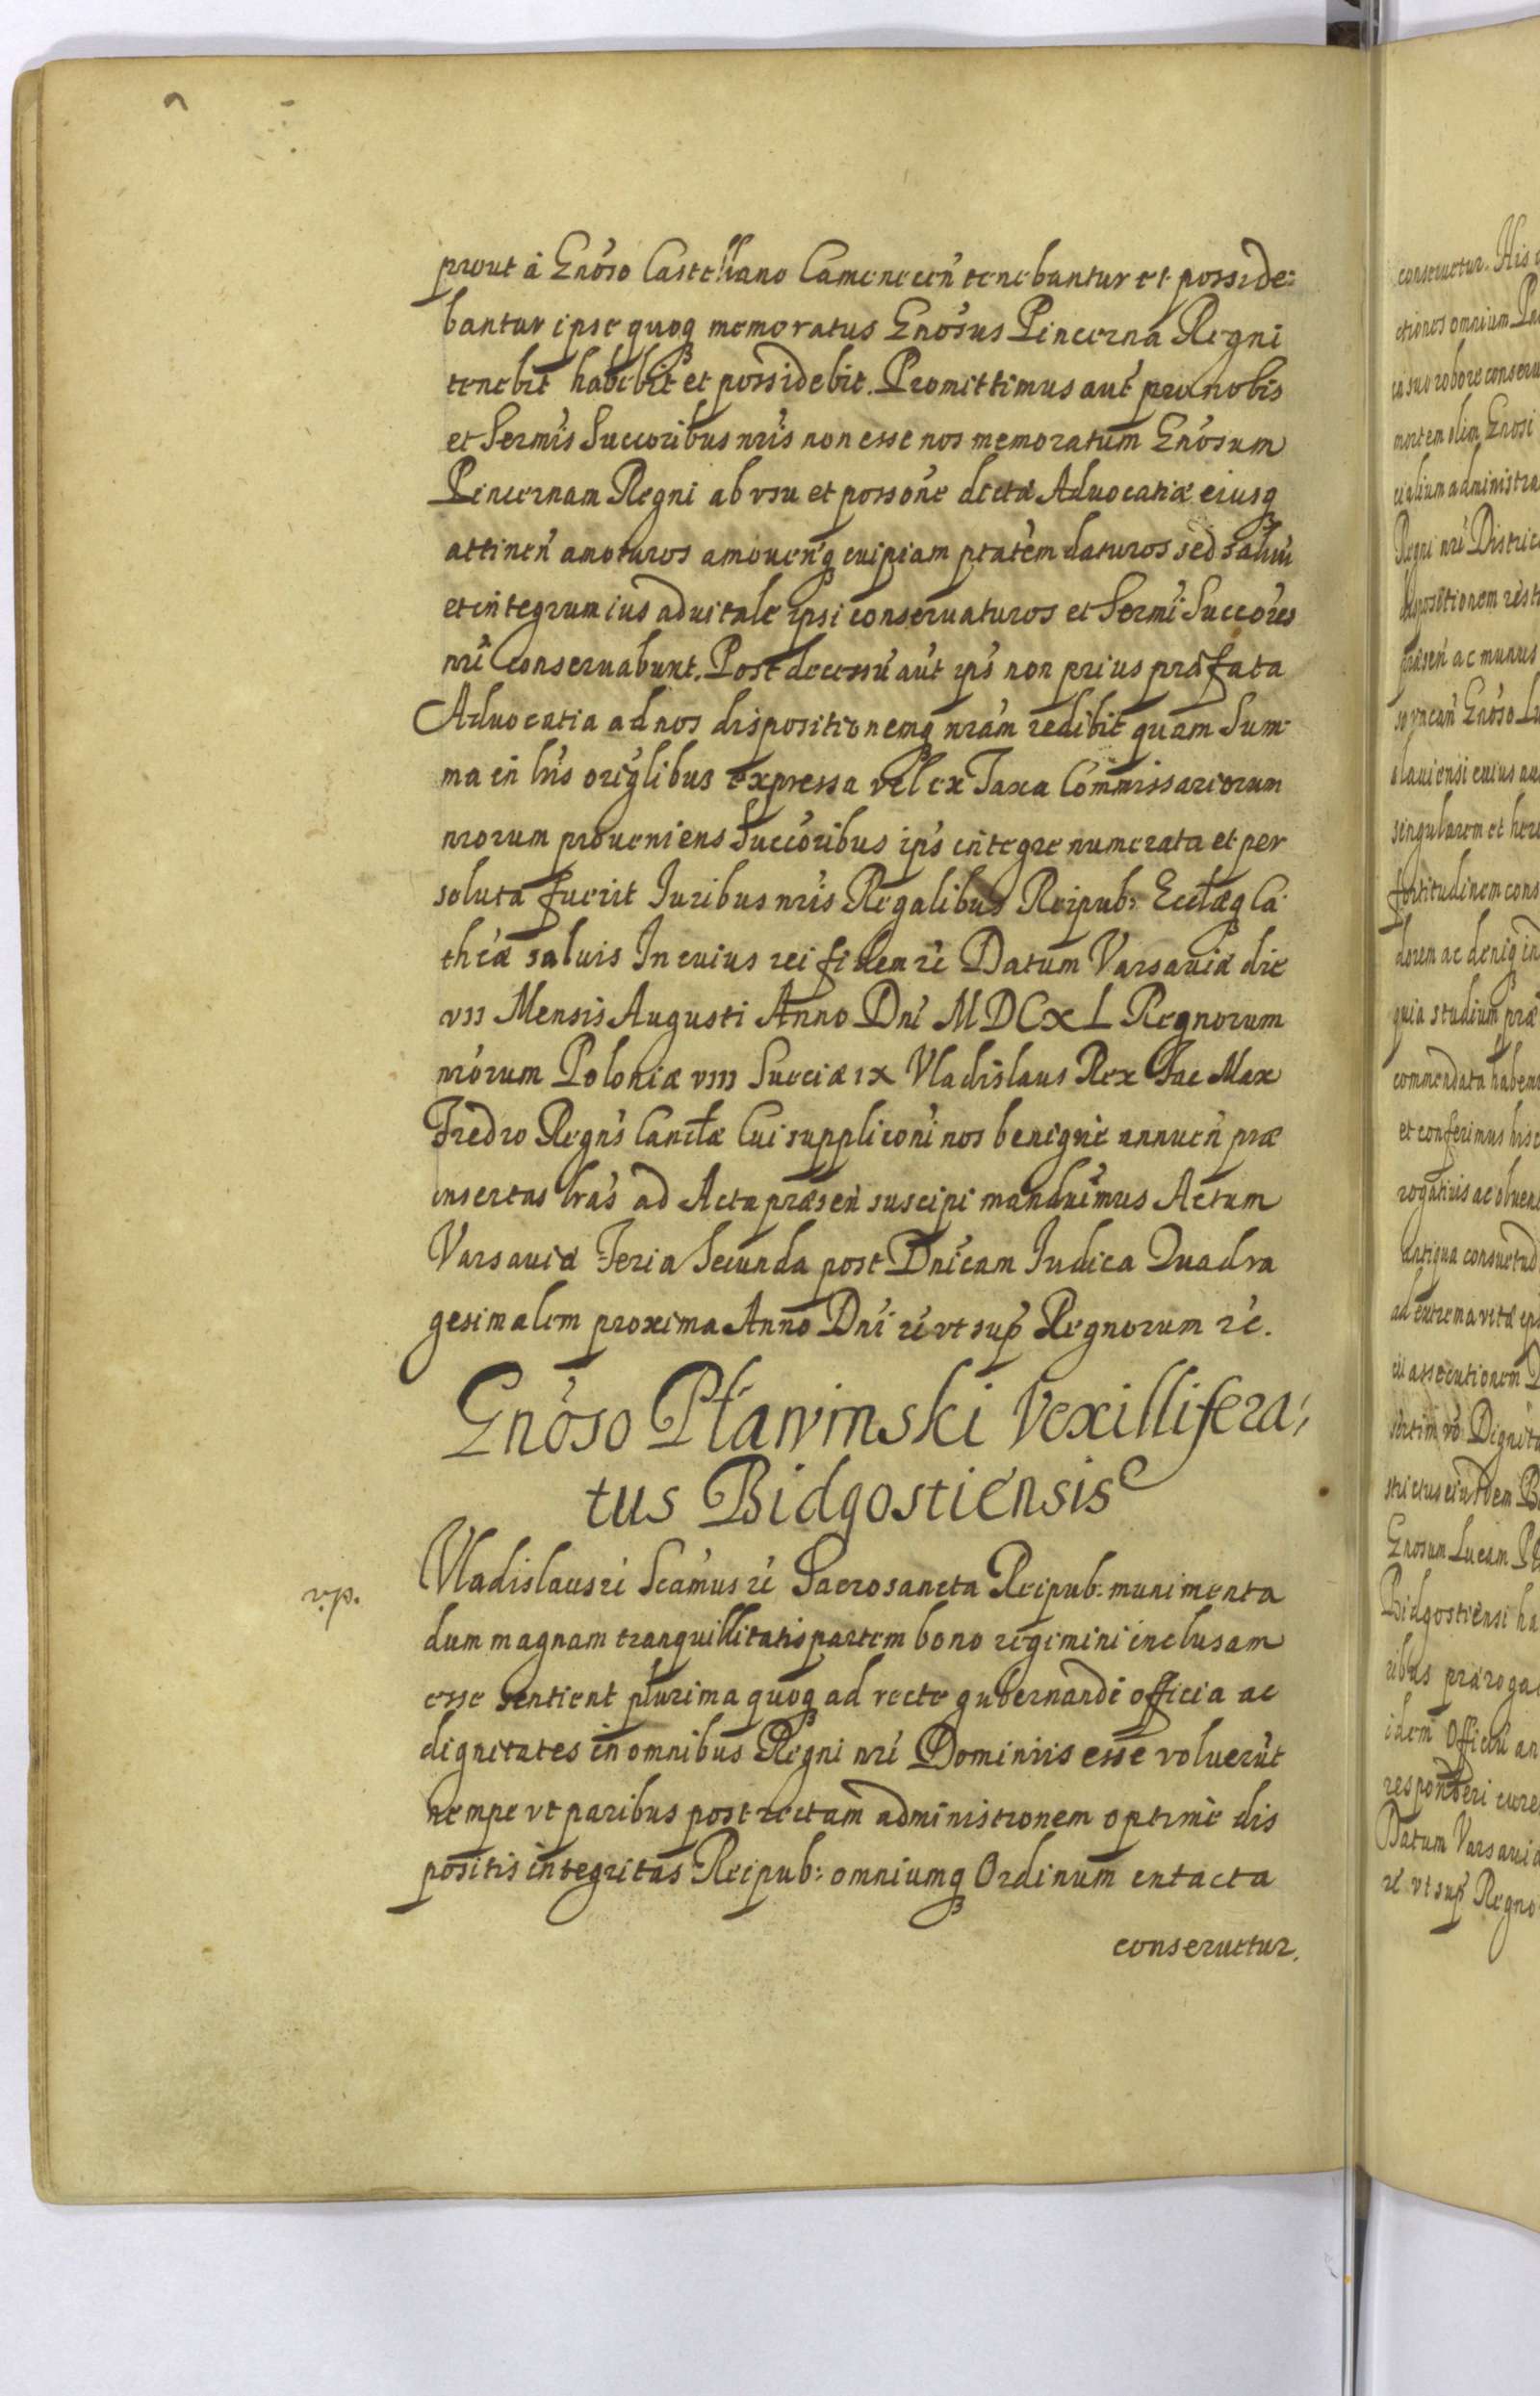 prout à Gnoso Castellano Camenecen̄ tenebantur et posside=
bantur ipse quoq memoratus Gnosus Pincerna Regni
tenebit habebit et possidebit. Promittimus aut̄ pro nobis
et Sermis Succoribus nris non esse nos memoratum Gnosum
Pincernam Regni ab vsu et possone dictæ Aduocatiæ eiusq
attinen̄ amoturos amouen̄q cuipiam ptatem daturos sed saluū
et integrum ius aduitale ipsi conseruaturos et Sermi Succores
nri conseruabunt. Post decessū aut̄ ips non prius præfata
Aduocatia ad nos dispositionemq nram redibit quam Sum
ma in lris origlibus expressa vel ex Taxa Commissariorum
nrorum proueniens Succoribus ips integre numerata et per
soluta fuerit Iuribus nris Regalibus Reipub: Ecclæq Ca
thcæ saluis In cuius rei fidem rć Datum Varsauiæ die
vii Mensis Augusti Anno Dni MDCXL Regnorum
nrorum Poloniæ viii Sueciæ ix Vladislaus Rex Iac Max
Fredro Regns Canclæ Cui suppliconi nos benigne annuen̄ præ
insertas lras ad Acta præsen̄ suscipi mandauimus Actum
Varsauiæ Feria Secunda post Dnicam Iudica Quadra
gesimalem proxima Anno Dni rć vt sup Regnorum rć.
Gnoso Pławinski Vexillifera,
tus Bidgostiensis
Vladislaus rć Scamus rć Sacrosancta Reipub: munimenta
dum magnam tranquillitatis partem bono regimini inclusam
esse sentient plurima quoq ad recte gubernandi officia ac
dignitates in omnibus Regni nri Dominiis esse voluerūt
nempe vt paribus post rectam administronem optime dis
positis integritas Reipub: omniumq Ordinum intacta
conseruetur.
conseruetur. His
ctionos omnium
ea suo robore conseru
mortem olim Gnosi
cialium administra
Regni nri Distric
dispositionem
præsen̄ ac munus
Gnoso
slauiensi cuius
singularem et
fortitudinem cons
dorem ac deniq in
quia studium præ
commendata habens
et conferimus
rogatiuis ac
antiqua consuetud
ad extrema vitæ
assecutionem
Dignit
strictus eiusdem
Gnosum Lucam
Bidgostiensi
ribus præroga
idem Officiū
responderi cure
Datum Varsauiæ
rć vt sup Regno